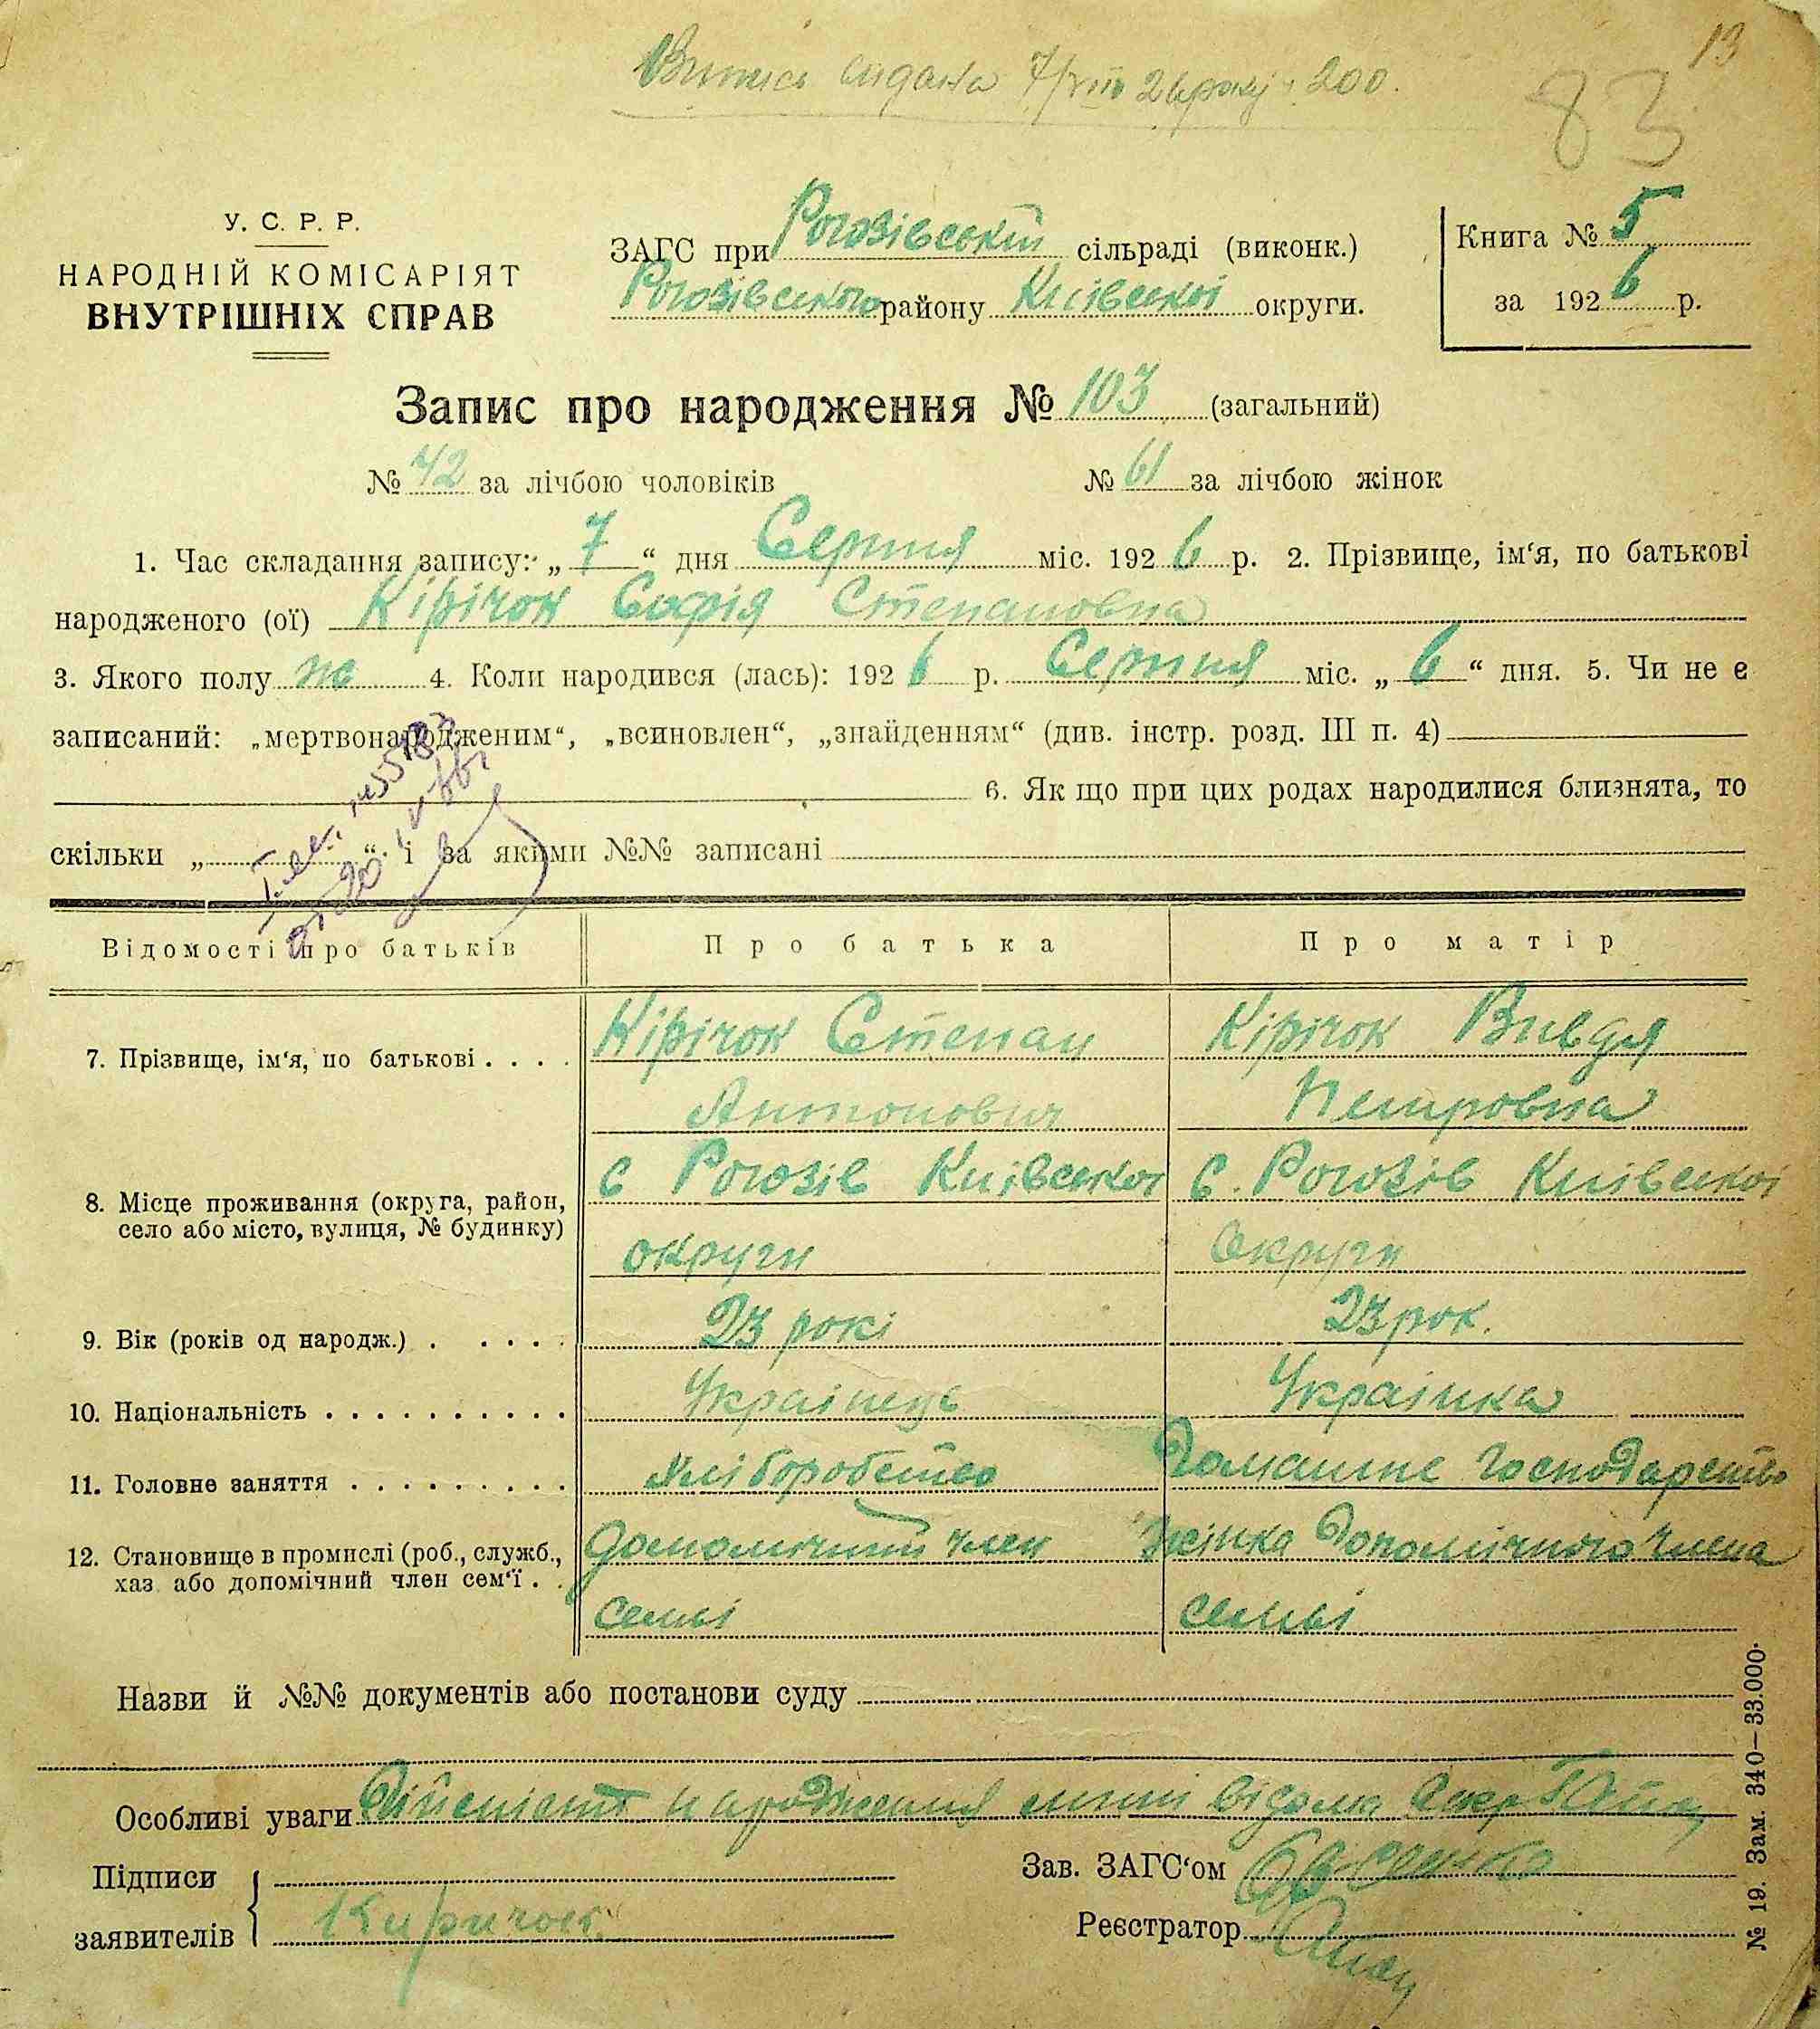 13
Випись видана 7/VIII 26 року ч. 200.
83
У. С. Р. Р.
НАРОДНІЙ КОМІСАРІЯТ
ВНУТРІШНІХ СПРАВ
ЗАГС при Рогозівській сільраді (виконк.)
Рогозівського району Київської округи.
Книга № 5
за 1926 р.
Запис про народження № 103 (загальний)
№ 42 за лічбою чоловіків № 61 за лічбою жінок
1. Час складання запису: „ 7 “ дня Серпня міс. 1926 р. 2. Прізвище, ім‘я, по батькові
народженого (ої) Кірічок Софія Степановна
3. Якого полу ж 4. Коли народився (лась): 1926 р. Серпня міс. „ 6 “ дня. 5. Чи не є
записаний: „мертвонародженим“, „всиновлен“, „знайденням“ (див. інстр. розд. III п. 4)
6. Як що при цих родах народилися близнята, то
скільки „ “ і за якими №№ записані
Відомості про батьків Про батька Про матір
7. Прізвище, ім‘я, по батькові . . . . Кірічок Степан Кірічок Вивдя
Антонович Петровна
8. Місце проживання (округа, район, с Рогозів Київської С. Рогозів Київської
село або місто, вулиця, № будинку)
округи Округи
9. Вік (років од народж.) . . . . . 23 рокі 23 рок.
10. Національність . . . . . . . . . . Українець Українка
11. Головне заняття . . . . . . . . . Хліборобство Домашне Господарство
12. Становище в промислі (роб., служб., допомічний член Жінка Допомічного члена
хаз. або допомічний член сем‘ї . . семьі семьі
Назви й №№ документів або постанови суду
Особливі уваги Дійсність народження мині відома
Підписи
заявителів Киричок
Зав. ЗАГС‘ом
Реєстратор
№ 19. Зам. 340—33.000.